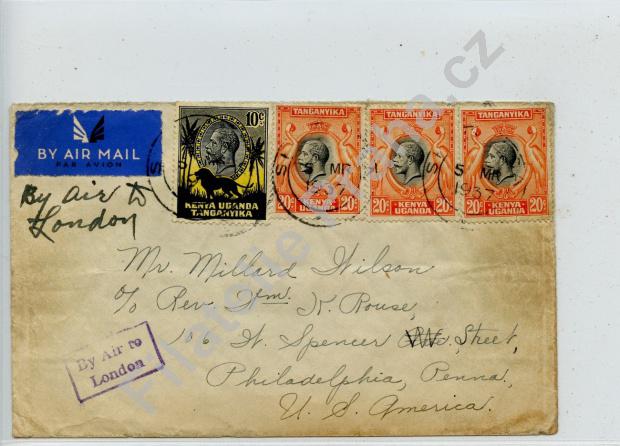 BY AIR MAIL
PAR AVION
By Air to
London
10c
KENYA UGANDA
TANGANYIKA
TANGANYIKA
20c KENYA UGANDA 20c
TANGANYIKA
20c KENYA UGANDA 20c
TANGANYIKA
20c KENYA UGANDA 20c
5 MR
5 MR
1937
Mr. Millard Wilson
c/o Rev. Wm. K. Rouse,
106 W. Spencer Street,
Philadelphia, Penna,
U. S. America.
By Air to
London
Filatelie Praha.cz